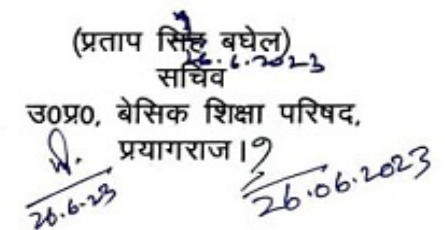 (प्रताप सिंह बघेल)
26.6.2023
सचिव
उ0प्र0, बेसिक शिक्षा परिषद,
प्रयागराज।
26.6.23
26.06.2023